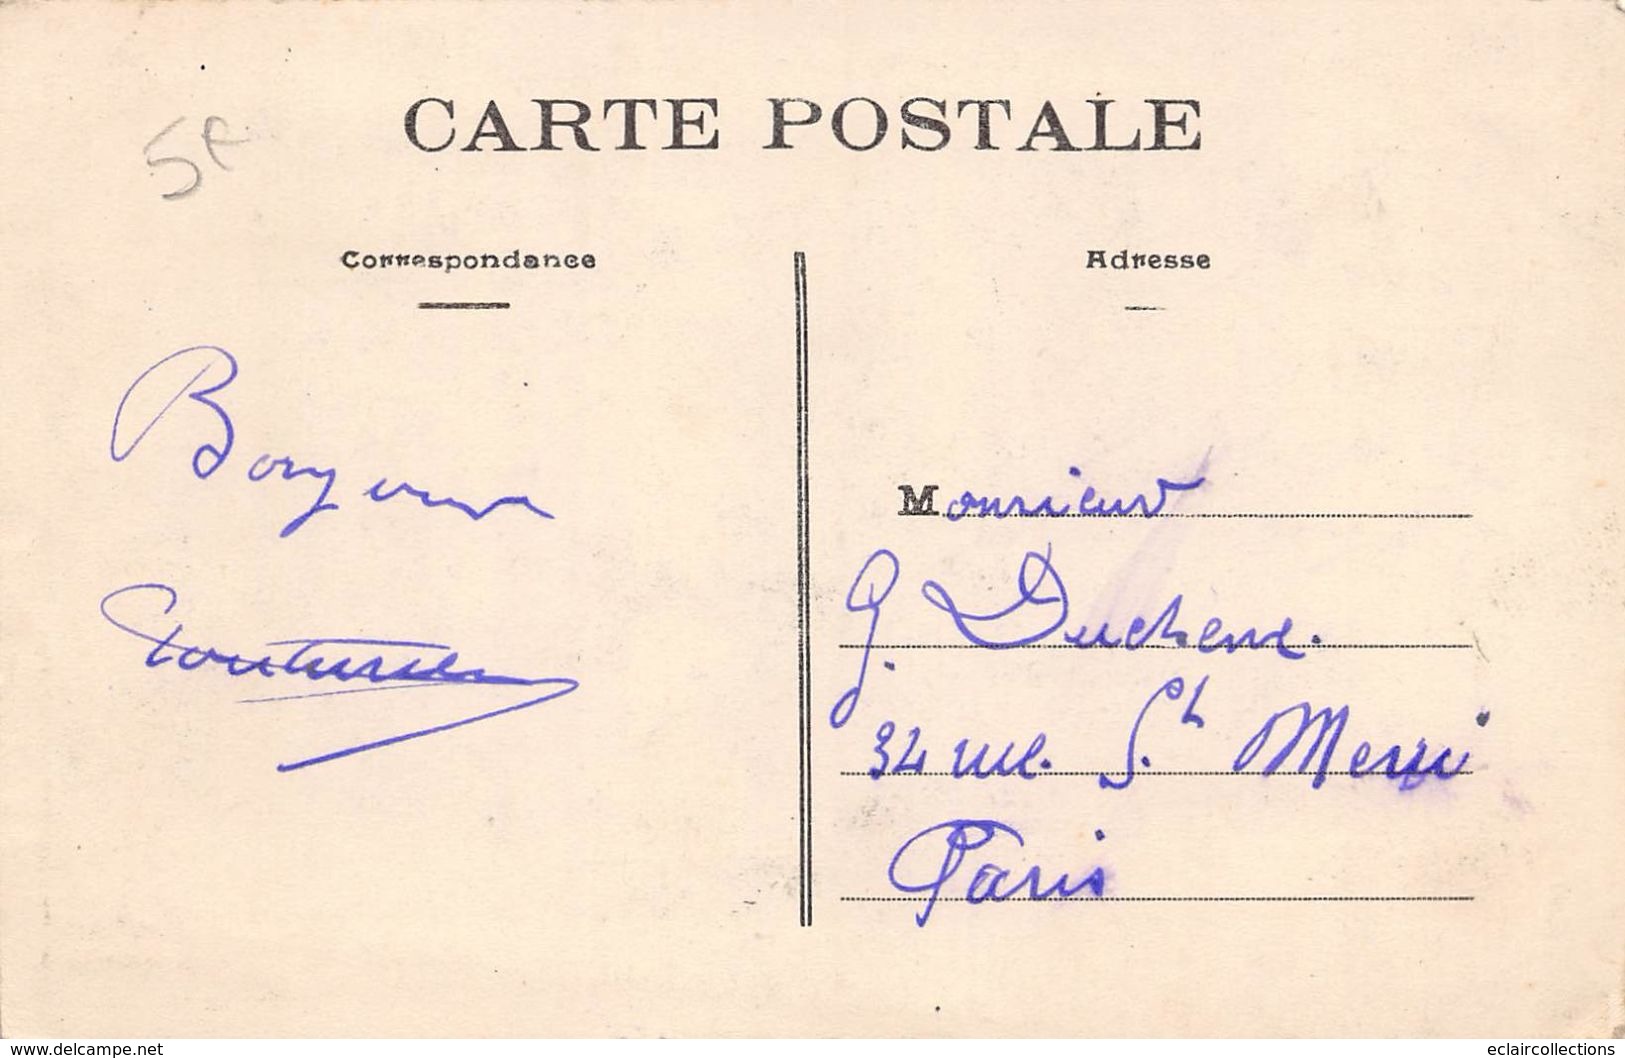 CARTE POSTALE
5F
Correspondance
Adresse
Bonjour
Monsieur
G. Duchene.
34 rue. St Merri
Paris
www.delcampe.net
eclaircollections